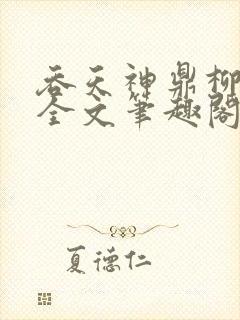 吞天神鼎柳
全文笔趣阁
夏德仁